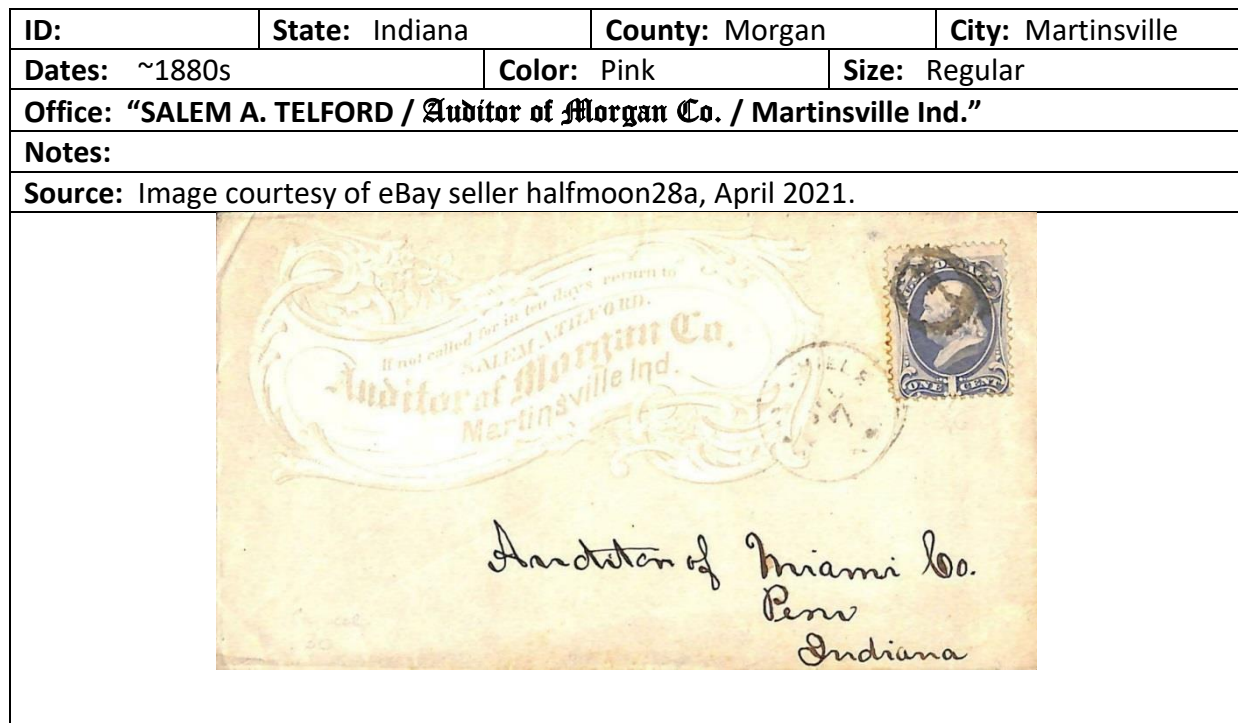 ID: State: Indiana County: Morgan City: Martinsville
Dates: ~1880s Color: Pink Size: Regular
Office: “SALEM A. TELFORD / Auditor of Morgan Co. / Martinsville Ind.”
Notes:
Source: Image courtesy of eBay seller halfmoon28a, April 2021.
If not called for in ten days return to
SALEM A. TILFORD.
Auditor of Morgan Co.
Martinsville Ind.
ONE CENT
Auditor of Miami Co.
Peru
Indiana